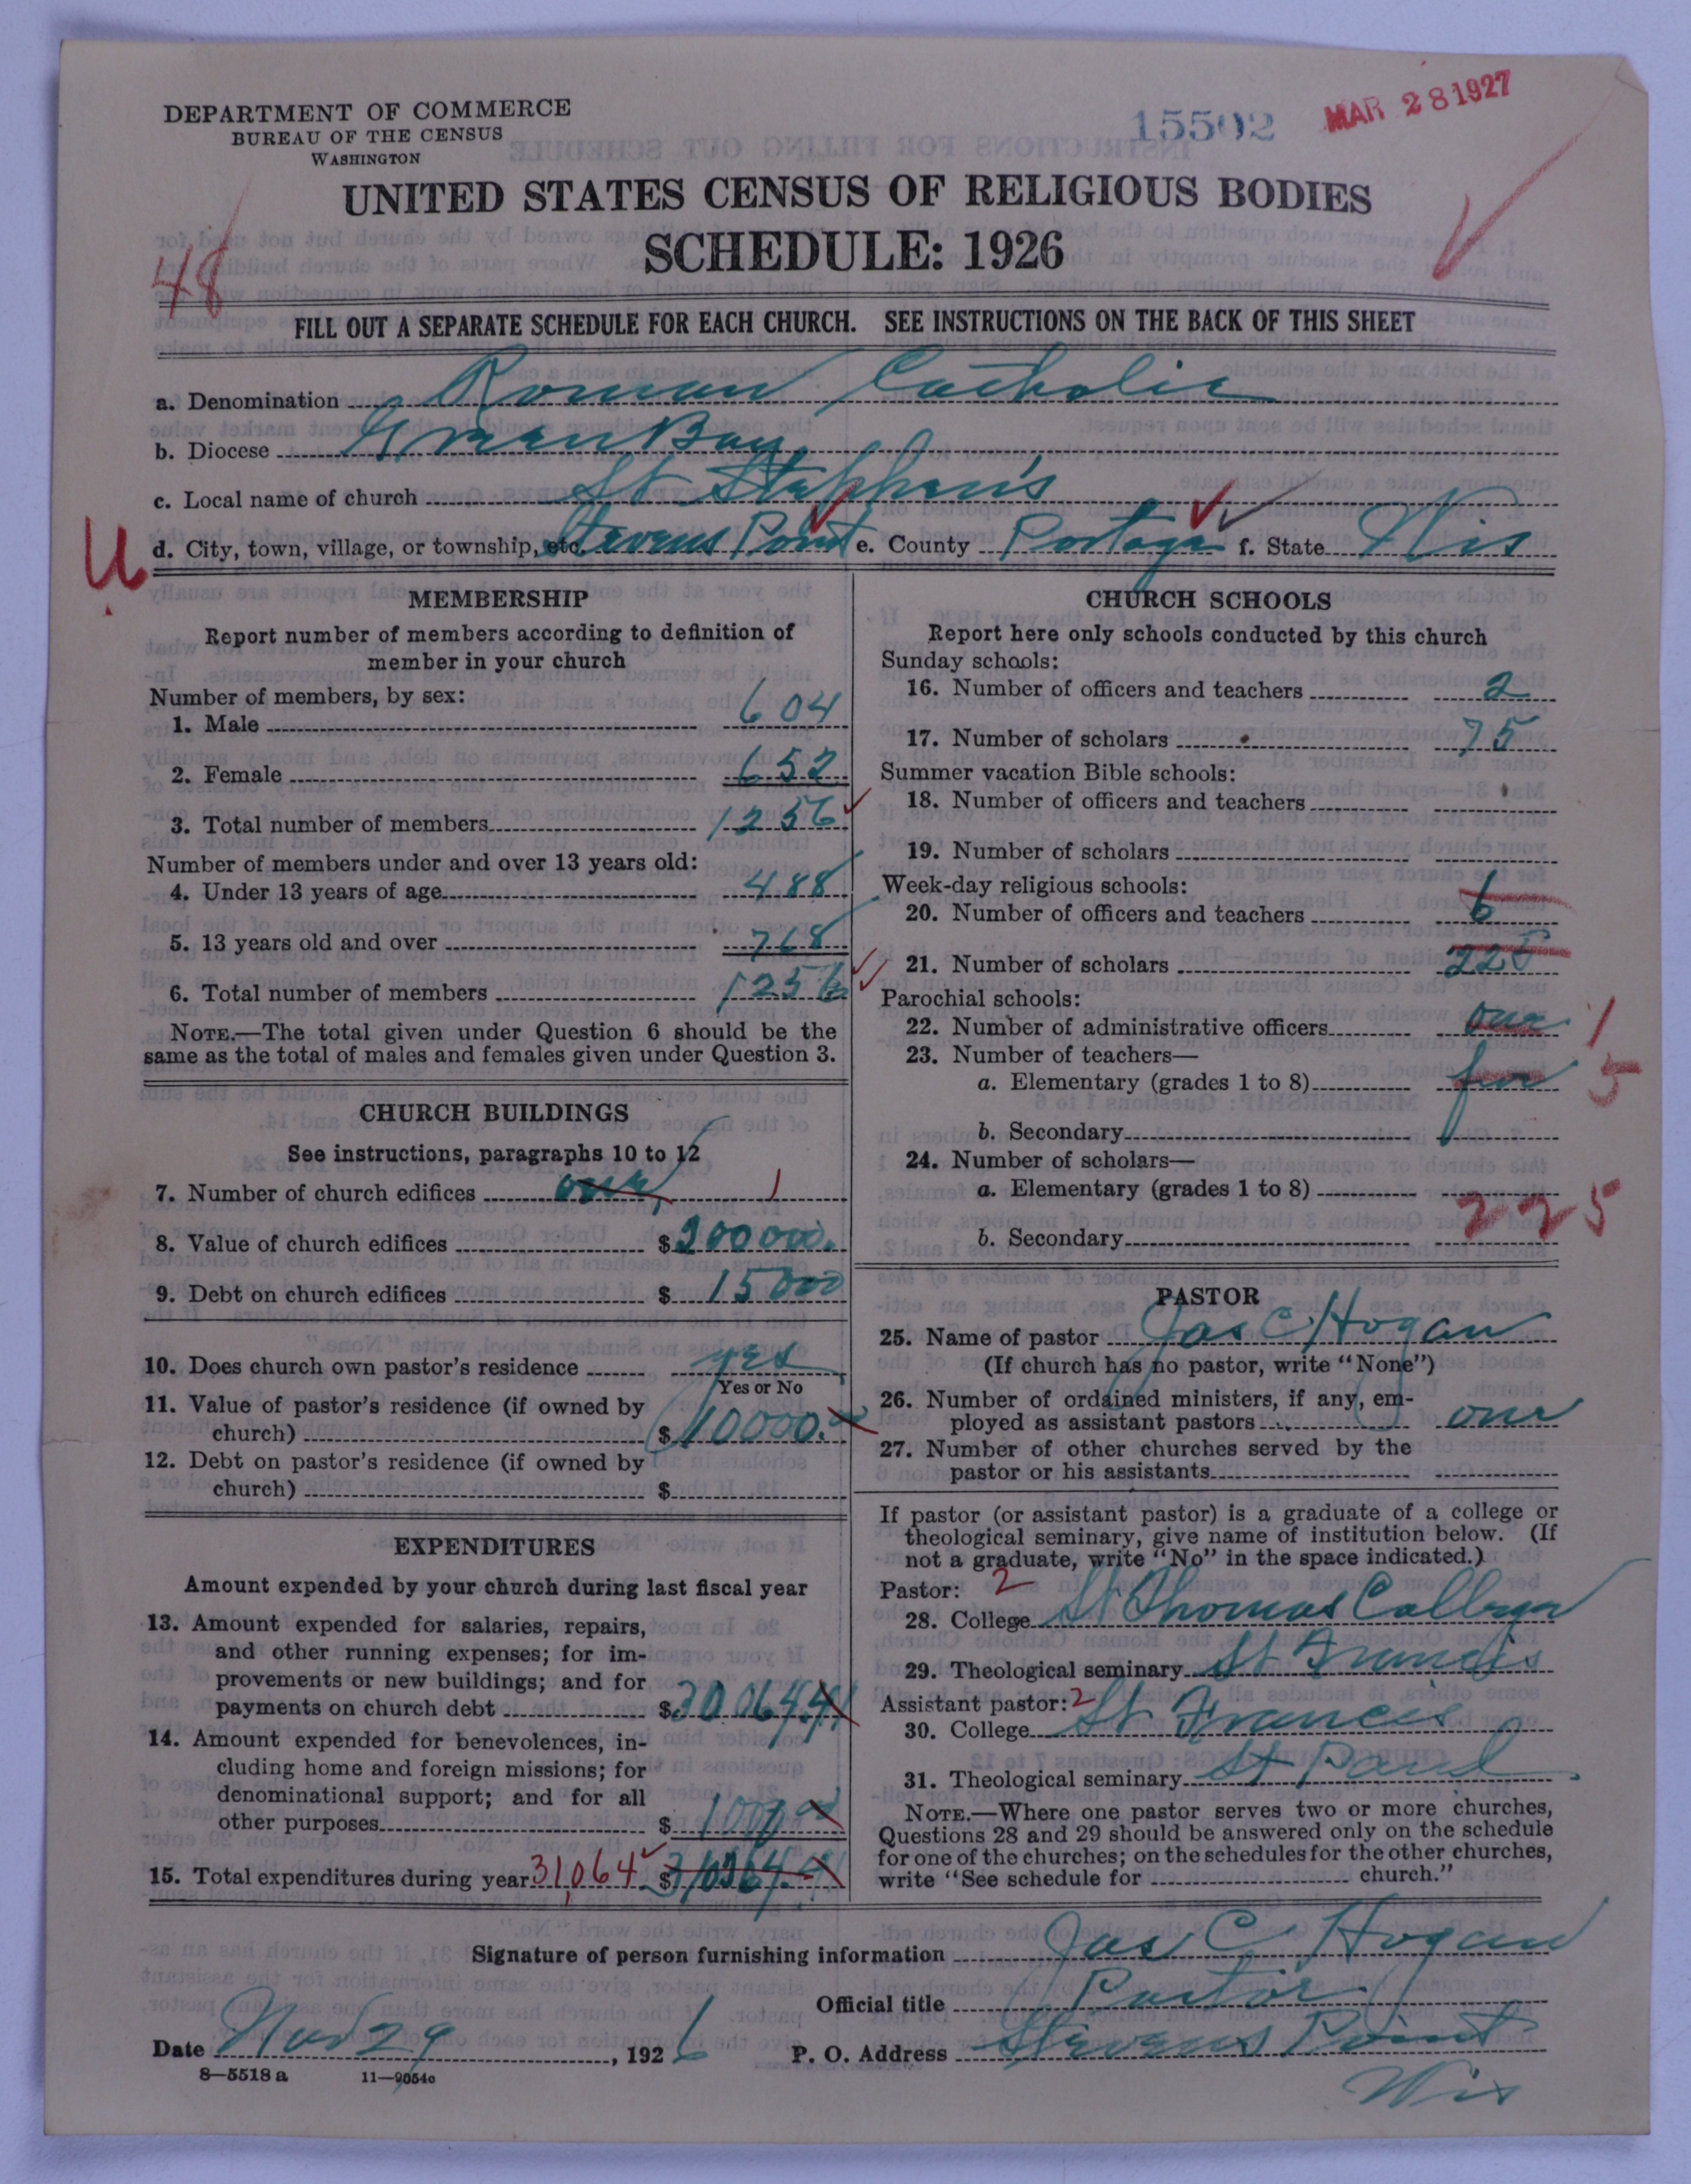 DEPARTMENT OF COMMERCE
BUREAU OF THE CENSUS
WASHINGTON
15502
MAR 28 1927
UNITED STATES CENSUS OF RELIGIOUS BODIES
SCHEDULE: 1926
48
FILL OUT A SEPARATE SCHEDULE FOR EACH CHURCH. SEE INSTRUCTIONS ON THE BACK OF THIS SHEET
a. Denomination Roman Catholic
b. Diocese Green Bay
c. Local name of church St Stephen's
U
d. City, town, village, or township, etc. Stevens Point e. County Portage f. State Wis
MEMBERSHIP
Report number of members according to definition of
member in your church
Number of members, by sex:
1. Male 604
2. Female 652
3. Total number of members 1256
Number of members under and over 13 years old:
4. Under 13 years of age 488
5. 13 years old and over 768
6. Total number of members 1256
NOTE.—The total given under Question 6 should be the
same as the total of males and females given under Question 3.
CHURCH BUILDINGS
See instructions, paragraphs 10 to 12
7. Number of church edifices one 1
8. Value of church edifices $200000.
9. Debt on church edifices $ 15000
10. Does church own pastor's residence yes
Yes or No
11. Value of pastor's residence (if owned by
church) $10000.00
12. Debt on pastor's residence (if owned by
church) $
EXPENDITURES
Amount expended by your church during last fiscal year
13. Amount expended for salaries, repairs,
and other running expenses; for im-
provements or new buildings; and for
payments on church debt $30064.41
14. Amount expended for benevolences, in-
cluding home and foreign missions; for
denominational support; and for all
other purposes $ 1000.00
15. Total expenditures during year 31,064 $31064.41
CHURCH SCHOOLS
Report here only schools conducted by this church
Sunday schools:
16. Number of officers and teachers 2
17. Number of scholars 75
Summer vacation Bible schools:
18. Number of officers and teachers
19. Number of scholars
Week-day religious schools:
20. Number of officers and teachers 6
21. Number of scholars 225
Parochial schools:
22. Number of administrative officers one 1
23. Number of teachers—
a. Elementary (grades 1 to 8) five 5
b. Secondary
24. Number of scholars—
a. Elementary (grades 1 to 8) 225
b. Secondary
PASTOR
25. Name of pastor Jas C Hogan
(If church has no pastor, write "None")
26. Number of ordained ministers, if any, em-
ployed as assistant pastors one
27. Number of other churches served by the
pastor or his assistants
If pastor (or assistant pastor) is a graduate of a college or
theological seminary, give name of institution below. (If
not a graduate, write "No" in the space indicated.)
Pastor: 2
28. College St Thomas College
29. Theological seminary St Francis
Assistant pastor: 2
30. College St Francis
31. Theological seminary St Paul
NOTE.—Where one pastor serves two or more churches,
Questions 28 and 29 should be answered only on the schedule
for one of the churches; on the schedules for the other churches,
write "See schedule for church."
Signature of person furnishing information Jas C Hogan
Official title Pastor
Date Nov 29, 1926 P. O. Address Stevens Point
Wis
8—5518 a 11—9054c